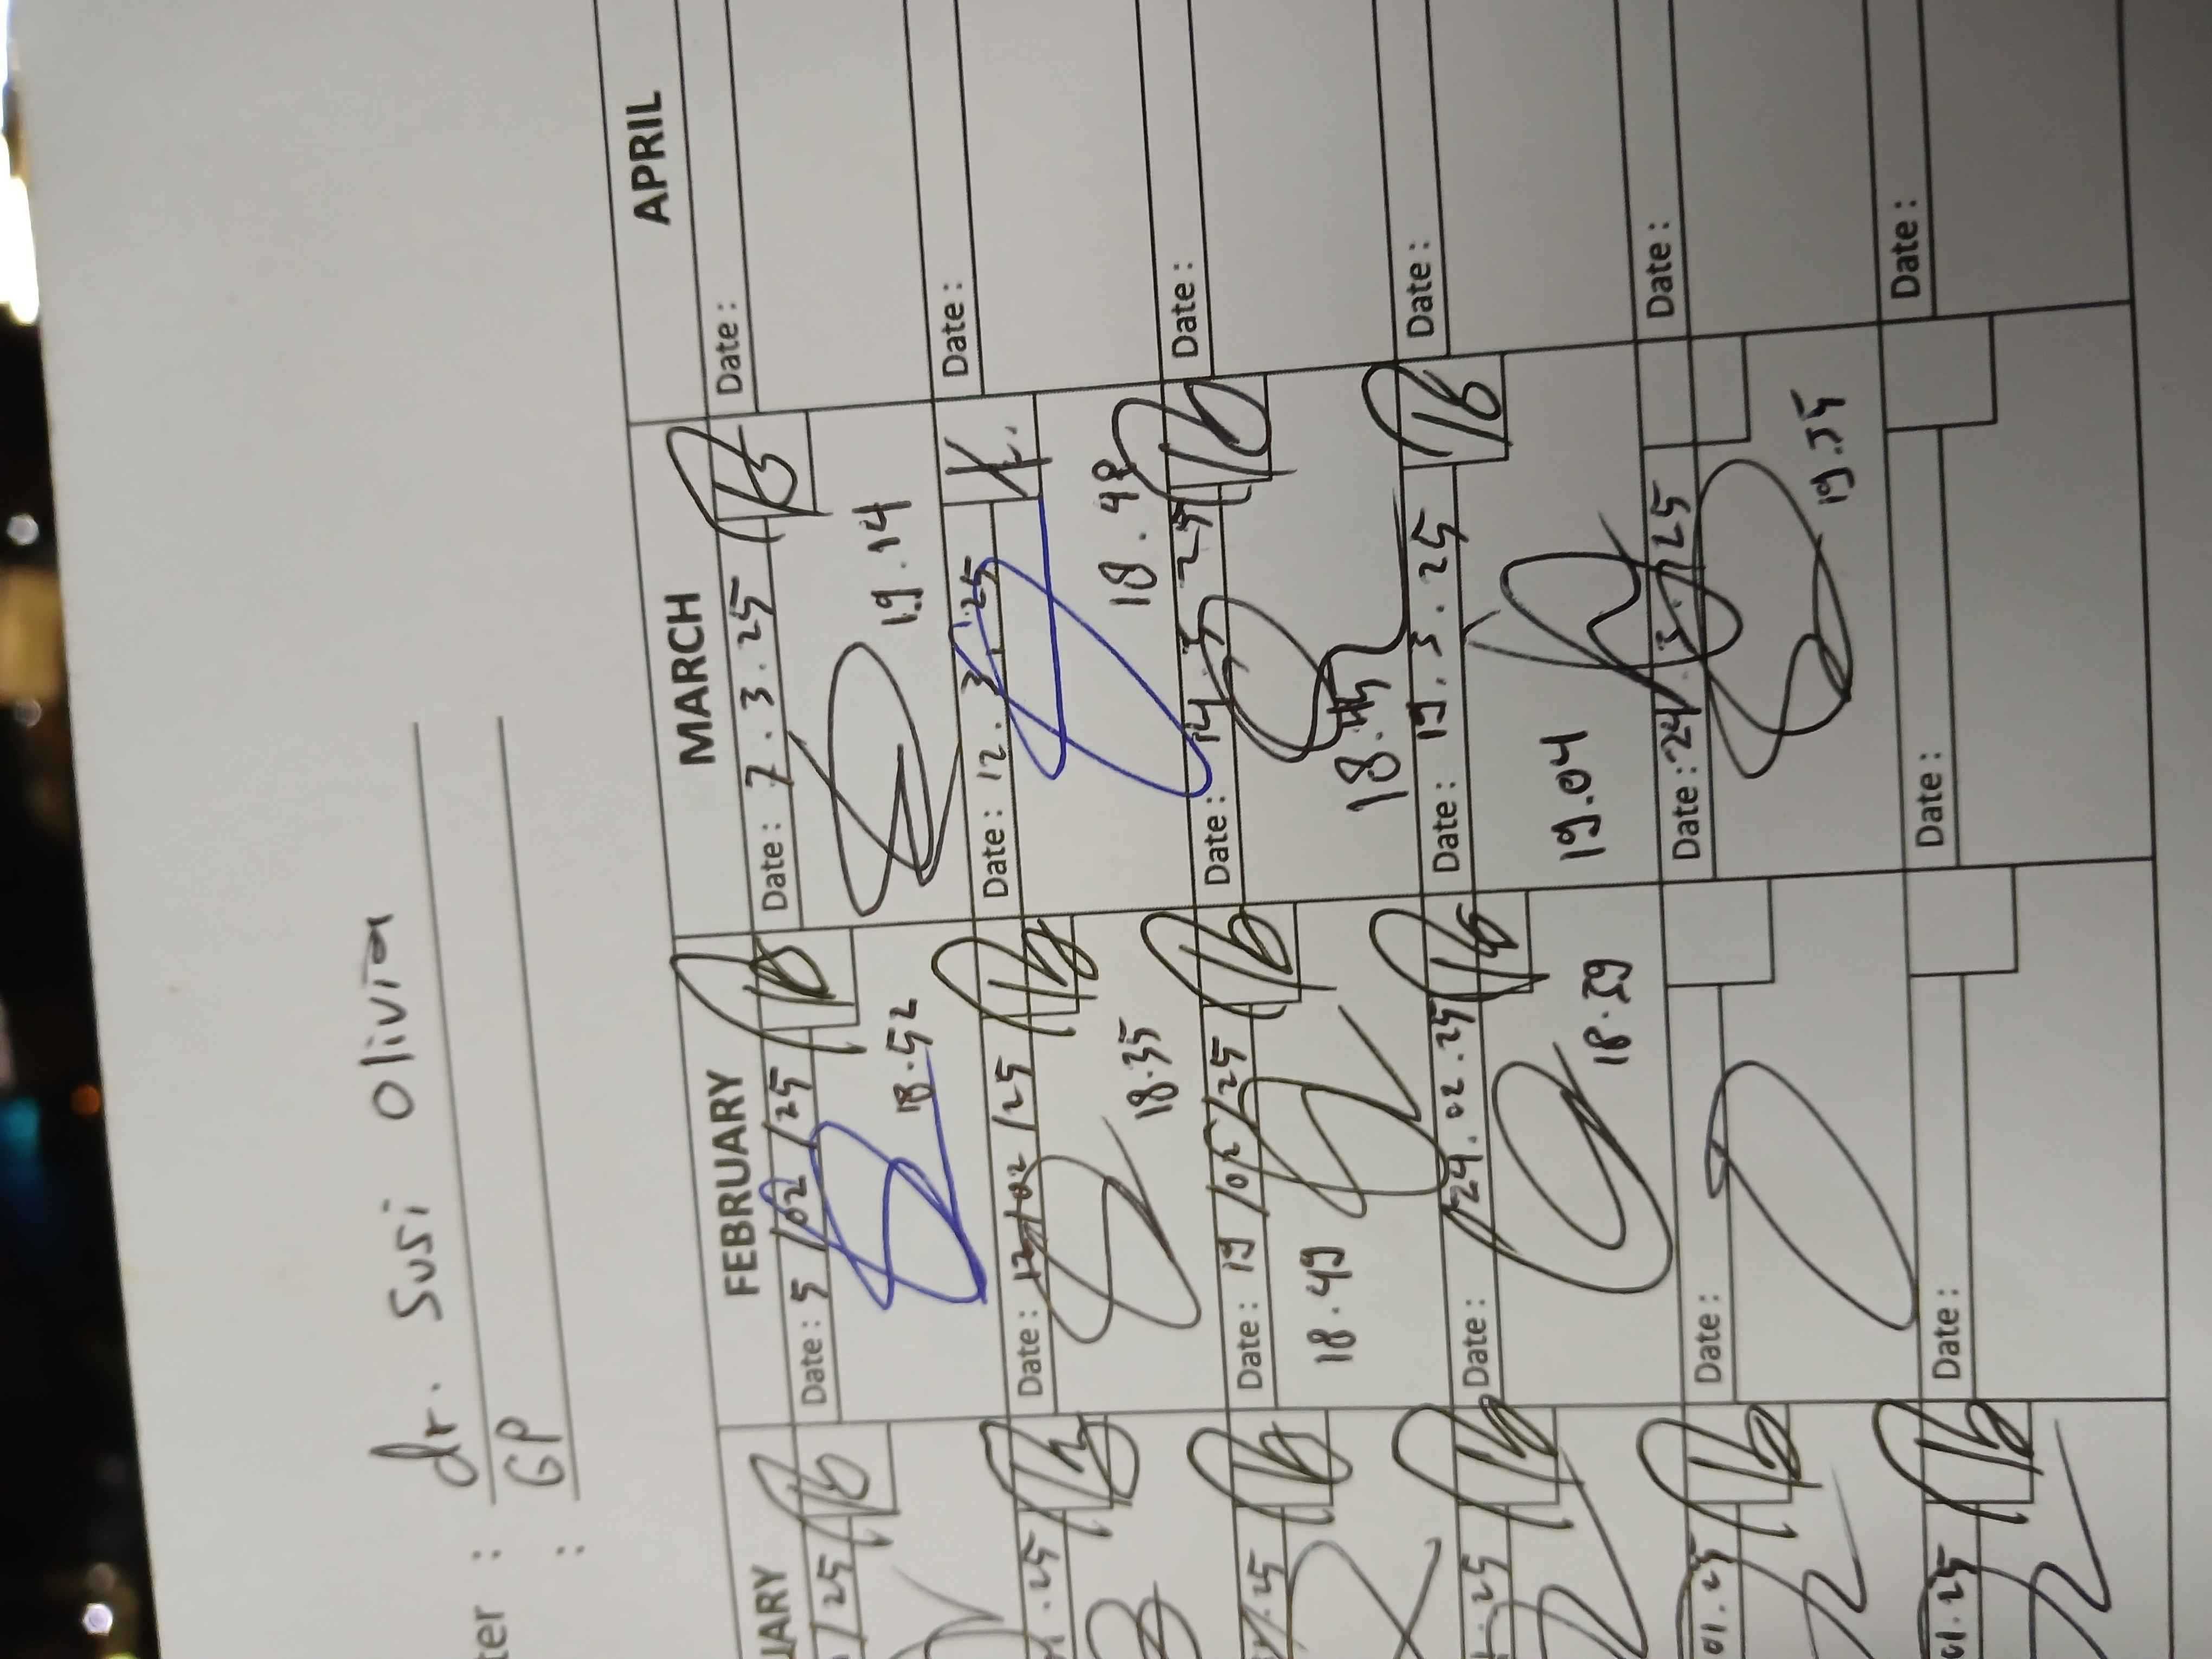 ter : dr. Susi Olivia
: GP
UARY FEBRUARY MARCH APRIL
/25 Date : 5 /02 /25 Date : 7 . 3 . 25 Date :
18.52 19.14
.25 Date : 12/02 /25 Date : 12 . 3 . 25 Date :
18.35 18.48
.25 Date : 19 /02 /25 Date : 14 . 3 . 25 Date :
18.49 18.45
.25 Date : 24.02.25 Date : 19 . 3 . 25 Date :
18.59 19.04
01.25 Date : Date : 24 . 3 . 25 Date :
19.35
01.25 Date : Date : Date :